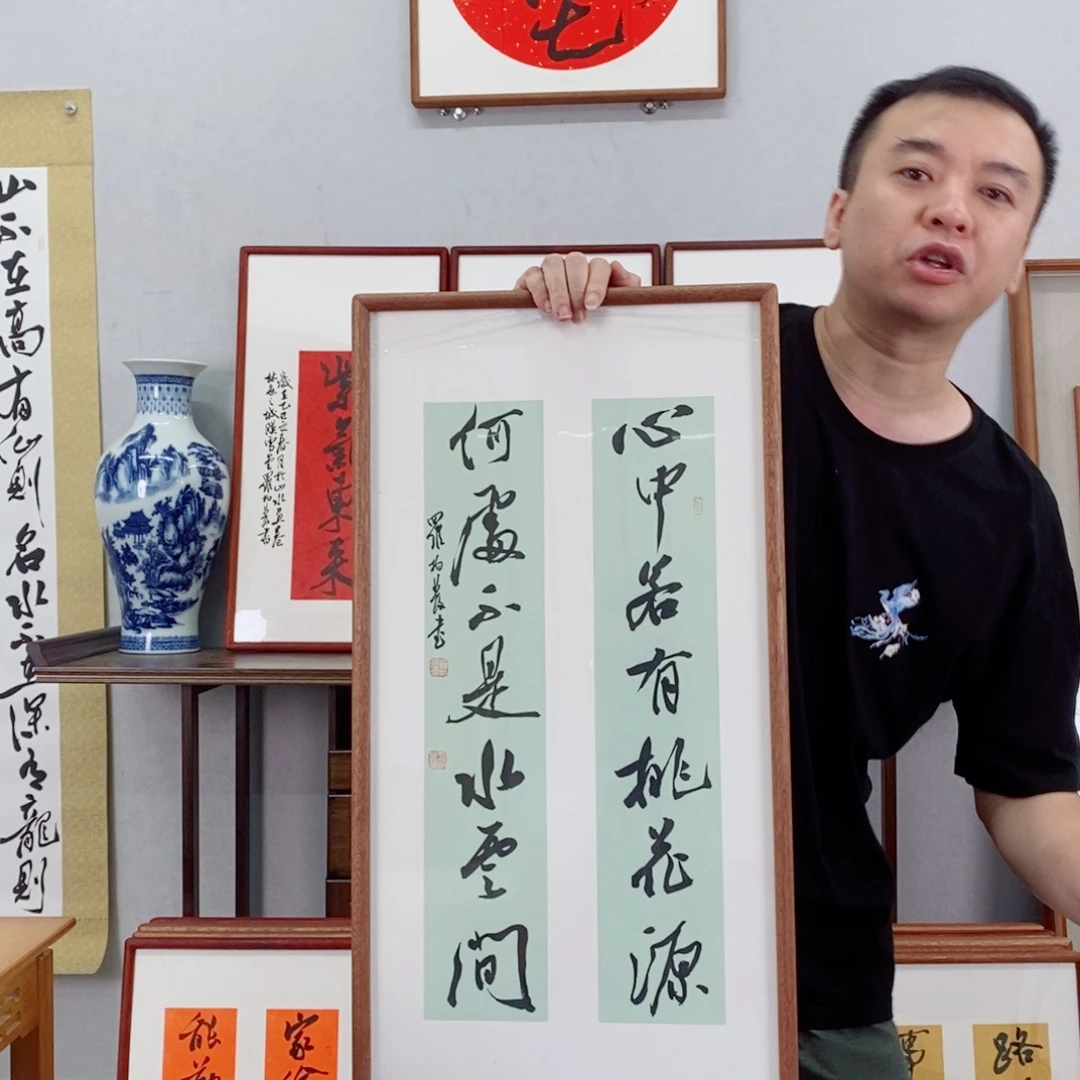 山不在高有仙則名水不在深有龍則
紫氣東来
心中若有桃花源
何處不是水雲間
羅
書
家
能
路
事